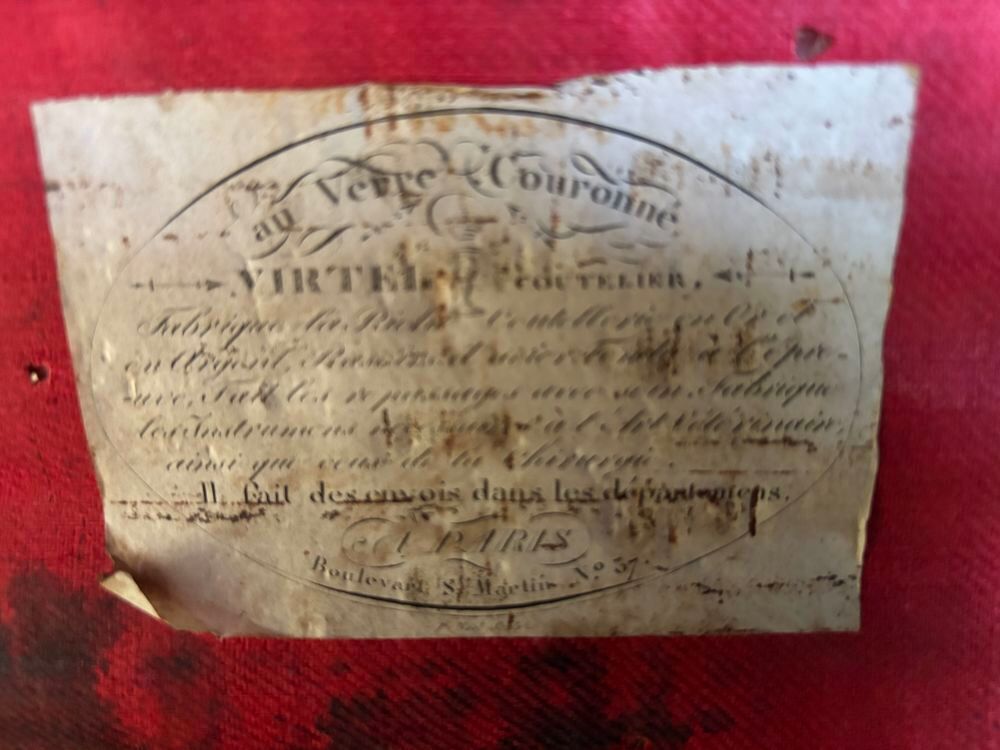 au Verre Couronné
VIRTEL COUTELIER.
Fabrique la Riche Coutellerie en Or et
en Argent, Rasoirs d'acier fondu à l'épreu-
uve, Fait les repassages avec soin, Fabrique
les Instrumens à l'Art Vétérinaire,
ainsi que ceux de la Chirurgie.
Il fait des envois dans les départemens,
A PARIS
Boulevart St. Martin No 37.